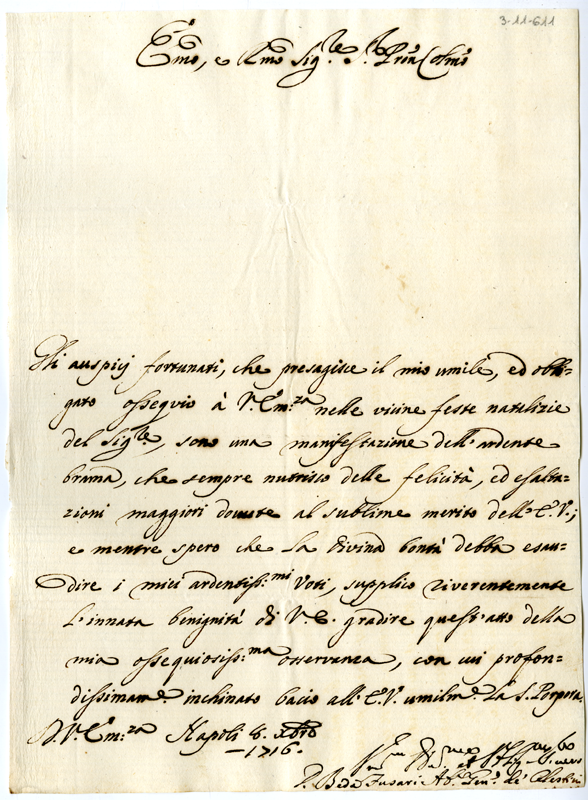 3-11-611
Em̃o, e Rm̃o Sig.re S.r Prõn Colmo
Gli auspicj fortunati, che presagisce il mio umile, ed obbli=
gato ossequio à V. Em.za nelle vicine feste natalizie
del Sig.re, sono una manifestazione dell'ardente
brama, che sempre nutrisco delle felicità, ed esalta=
zioni maggiori dovute al sublime merito dell'E.V.;
e mentre spero che la divina bontà debba esau=
dire i miei ardentiss.mi Voti, supplico riverentemente
l'innata benignità di V.E. gradire quest'atto della
mia ossequiosiss.ma osservanza, con cui profon=
dissimame. inchinato bacio all'E.V. umilme. la S. Porpora.
D.V. Em.za Napoli 8. Xbre
1716.
P. Beda Fusari Ab. Gen. de' Celestini